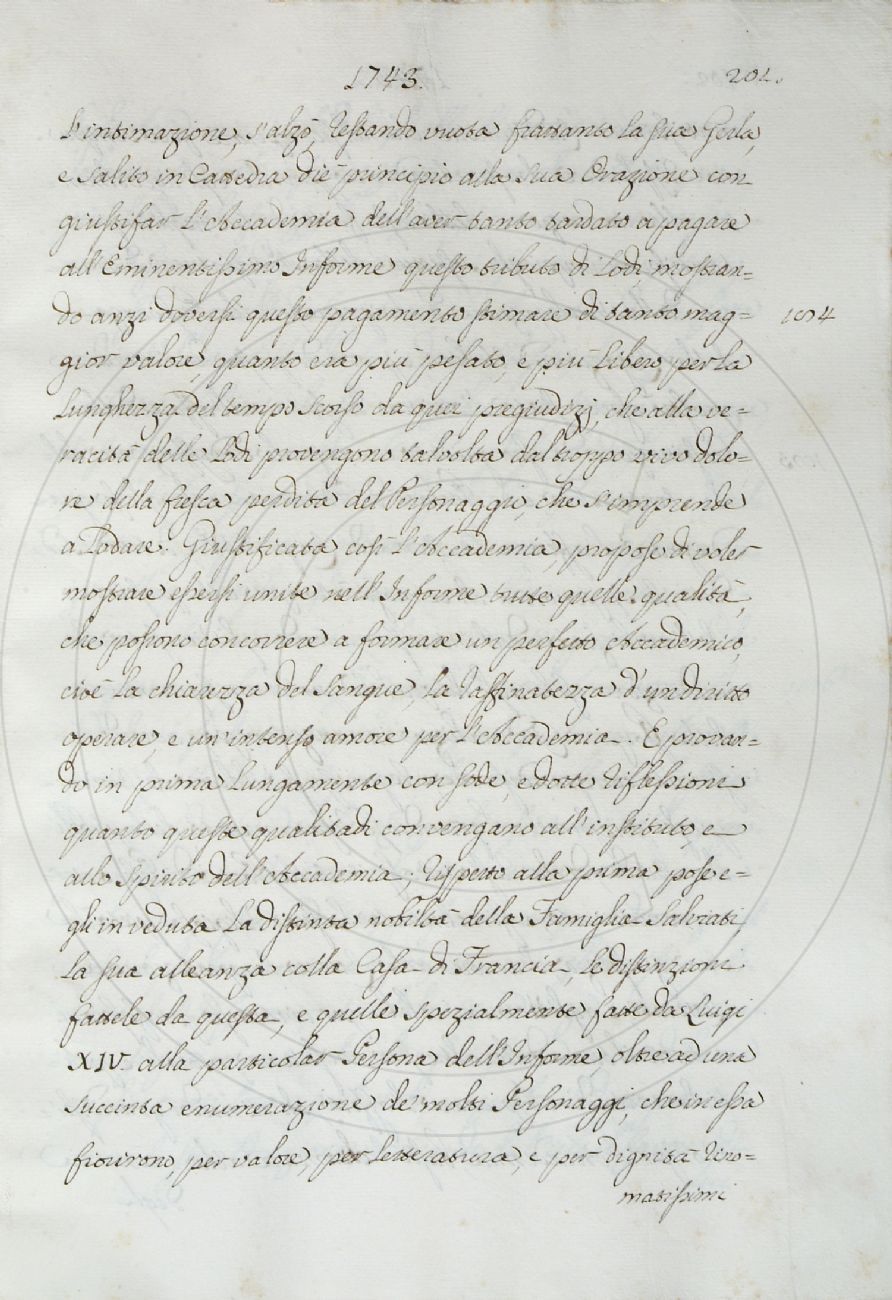 1743.
201.
L'intimazione, s'alzò, restando vuota frattanto la sua Gerla,
e salito in Cattedra diè principio alla sua Orazione con
giustifar l'Accademia dell'aver tanto tardato a pagare
all'Eminentissimo Informe questo tributo di Lodi, mostran=
do anzi doversi questo pagamento stimare di tanto mag=
gior valore, quanto era più pesato, e più libero per la
Lunghezza del tempo scorso da quei pregiudizj, che alla ve=
racità delle Lodi provengono talvolta dal troppo vivo dolo=
re della fresca perdita del Personaggio, che s'imprende
a Lodare. Giustificata così l'Accademia, propose di voler
mostrare essersi unite nell'Informe tutte quelle qualità,
che possono concorrere a formare un perfetto Accademico,
cioè la chiarezza del sangue, la raffinatezza d'un diritto
operare, e un intenso amore per l'Accademia. E provan=
do in prima lungamente con sode, e dotte riflessioni
quanto queste qualitadi convengano all'instituto, e
allo spirito dell'Accademia; rispetto alla prima pose e=
gli in veduta la distinta nobiltà della Famiglia Salviati,
la sua alleanza colla Casa di Francia, le distinzioni
fattele da questa, e quelle spezialmente fatte da Luigi
XIV. alla particolar Persona dell'Informe, oltre ad una
succinta enumerazione de' molti Personaggi, che in essa
fiorirono, per valore, per letteratura, e per dignità rino=
matissimi
1004